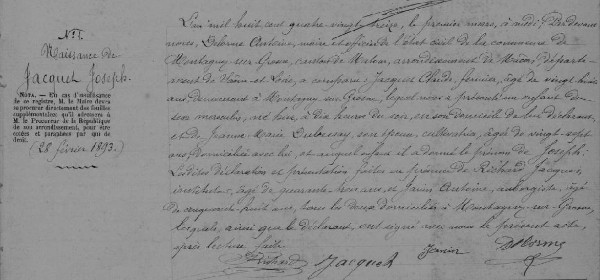 N° 7.
Naissance de
Jacquet Joseph.
NOTA. — En cas d'insuffisance
de ce registre, M. le Maire devra
se procurer directement des feuilles
supplémentaires qu'il adressera à
M. le Procureur de la République
de son arrondissement, pour être
cotées et paraphées par qui de
droit.
(28 février 1893.)
L'an mil huit cent quatre vingt treize, le premier mars, à midi; Par devant
nous, Delorme Antoine, maire et officier de l'état civil de la commune de
Montagny sur Grosne, canton de Matour, arrondissement de Mâcon, départe-
ment de Saône et Loire, a comparu Jacquet Claude, fermier, âgé de vingt huit
ans demeurant à Montagny sur Grosne, lequel nous a présenté un enfant du
sexe masculin, né hier, à dix heures du soir, en son domicile de lui déclarant,
et de Jeanne Marie son épouse, cultivatrice, âgée de vingt-sept
ans domiciliée avec lui, et auquel enfant il a donné le prénom de Joseph.
Lesdites déclaration et présentation faites en présence de Richard Jacques,
âgé de quarante trois ans, et Janin Antoine, aubergiste, âgé
de cinquante huit ans, tous les deux domiciliés à Montagny-sur-Grosne,
lesquels, ainsi que le déclarant, ont signé avec nous le présent acte,
après lecture faite.
Richard Jacquet Janin Delorme